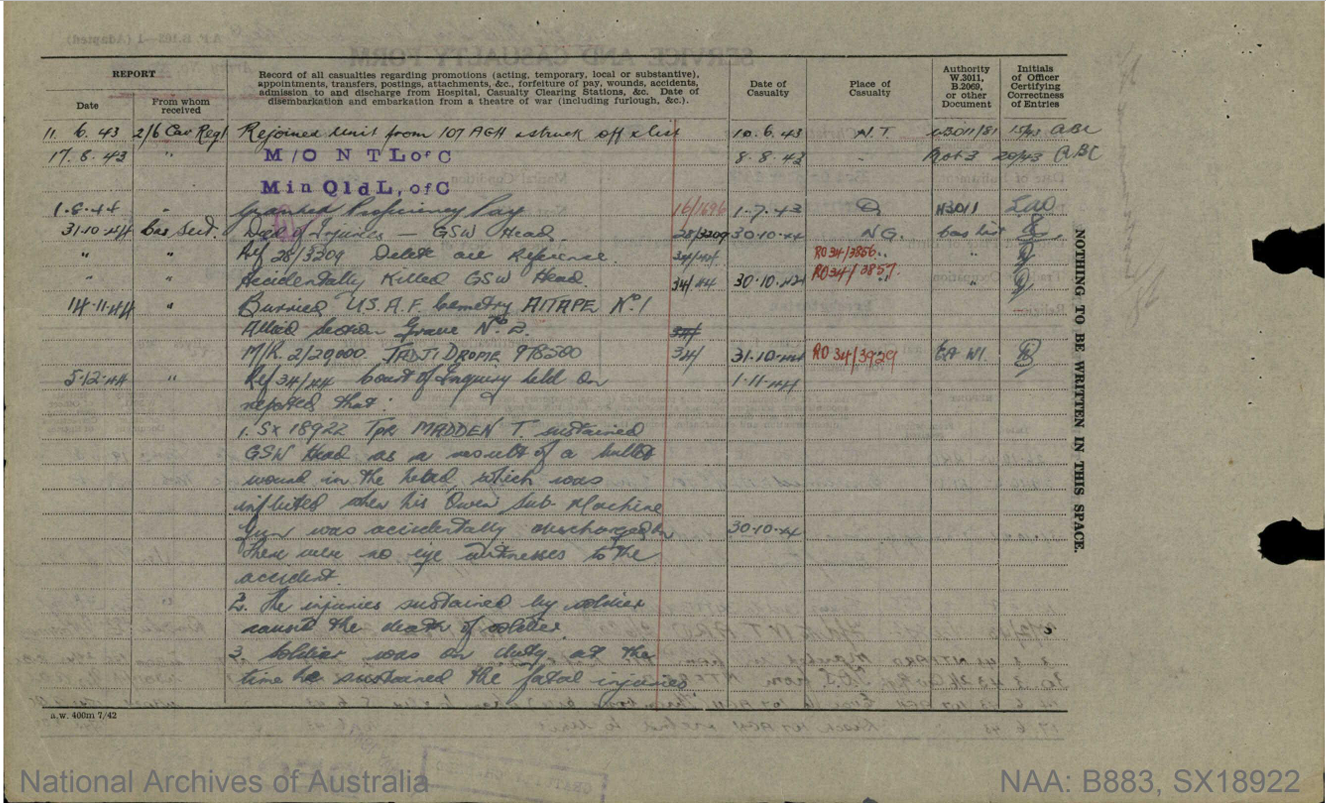 SERVICE AND CASUALTY FORM
REPORT
Date
From whom received
Record of all casualties regarding promotions (acting, temporary, local or substantive),
appointments, transfers, postings, attachments, &c., forfeiture of pay, wounds, accidents,
admission to and discharge from Hospital, Casualty Clearing Stations, &c. Date of
disembarkation and embarkation from a theatre of war (including furlough, &c.).
Date of Casualty
Place of Casualty
Authority W.3011, B.2069, or other Document
Initials of Officer Certifying Correctness of Entries
11. 6. 43 2/6 Cav Regt Rejoined Unit from 107 AGH & struck off x list 10.6.43 N.T. W3011/81 15/43 ABC
17. 8. 43 " M/O N T L of C 8.8.43 - 20/43 ABC
M in Qld L, of C
1.8.44 " Granted Proficiency Pay 16/1696 1.7.43 Q W3011
31.10.44 Cas Sect. Died of Injuries — GSW Head. 28/3209 30.10.44 N.G. Cas list
" " Ref 28/3209 Delete all Reference. 34/44 RO34/3856 " "
" Accidentally Killed GSW Head. 34/44 30.10.44 RO34/3857 " "
14.11.44 " Buried U.S.A.F. Cemetry AITAPE No. 1
Allied Section Grave No. 2. 34/
M/R. 2/20000. TADJI DROME 978560 34/ 31.10.44 RO 34/3929 EA W1.
5.12.44 " Ref 34/44 Court of Enquiry held on 1.11.44
reported that:
1. SX 18922 Tpr MADDEN T. sustained
GSW Head as a result of a bullet
wound in the head which was
inflicted when his Owen Sub. Machine
Gun was accidentally discharged on 30.10.44
There were no eye witnesses to the
accident.
2. The injuries sustained by soldier
caused the death of soldier.
3. Soldier was on duty at the
time he sustained the fatal injuries
a.w. 400m 7/42
NOTHING TO BE WRITTEN IN THIS SPACE.
National Archives of Australia
NAA: B883, SX18922